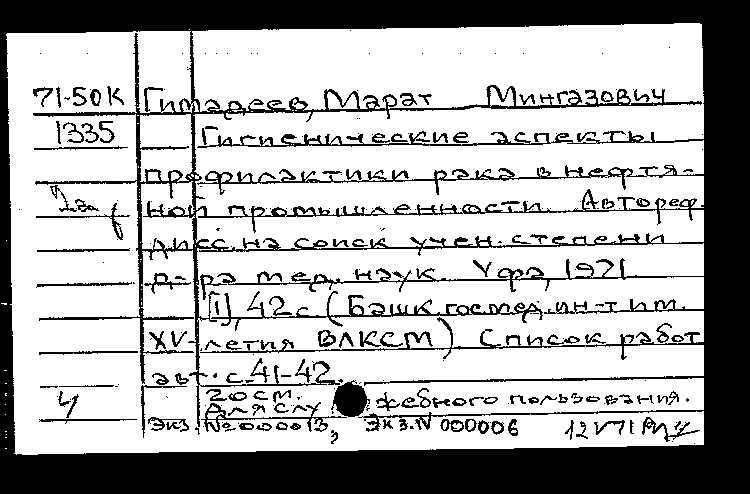 71-50К Гимадеев, Марат Мингазович
1335 Гигиенические аспекты
профилактики рака в нефтя-
ной промышленности. Автореф.
дисс. на соиск учен. степени
д-ра мед. наук. Уфа, 1971.
[1], 42 с. (Башк. гос. мед. ин-т им.
XV-летия ВЛКСМ) Список работ
авт. с. 41-42.
20 см.
Ч Для служебного пользования.
Экз. №000013, Экз. N 000006 12 V 71